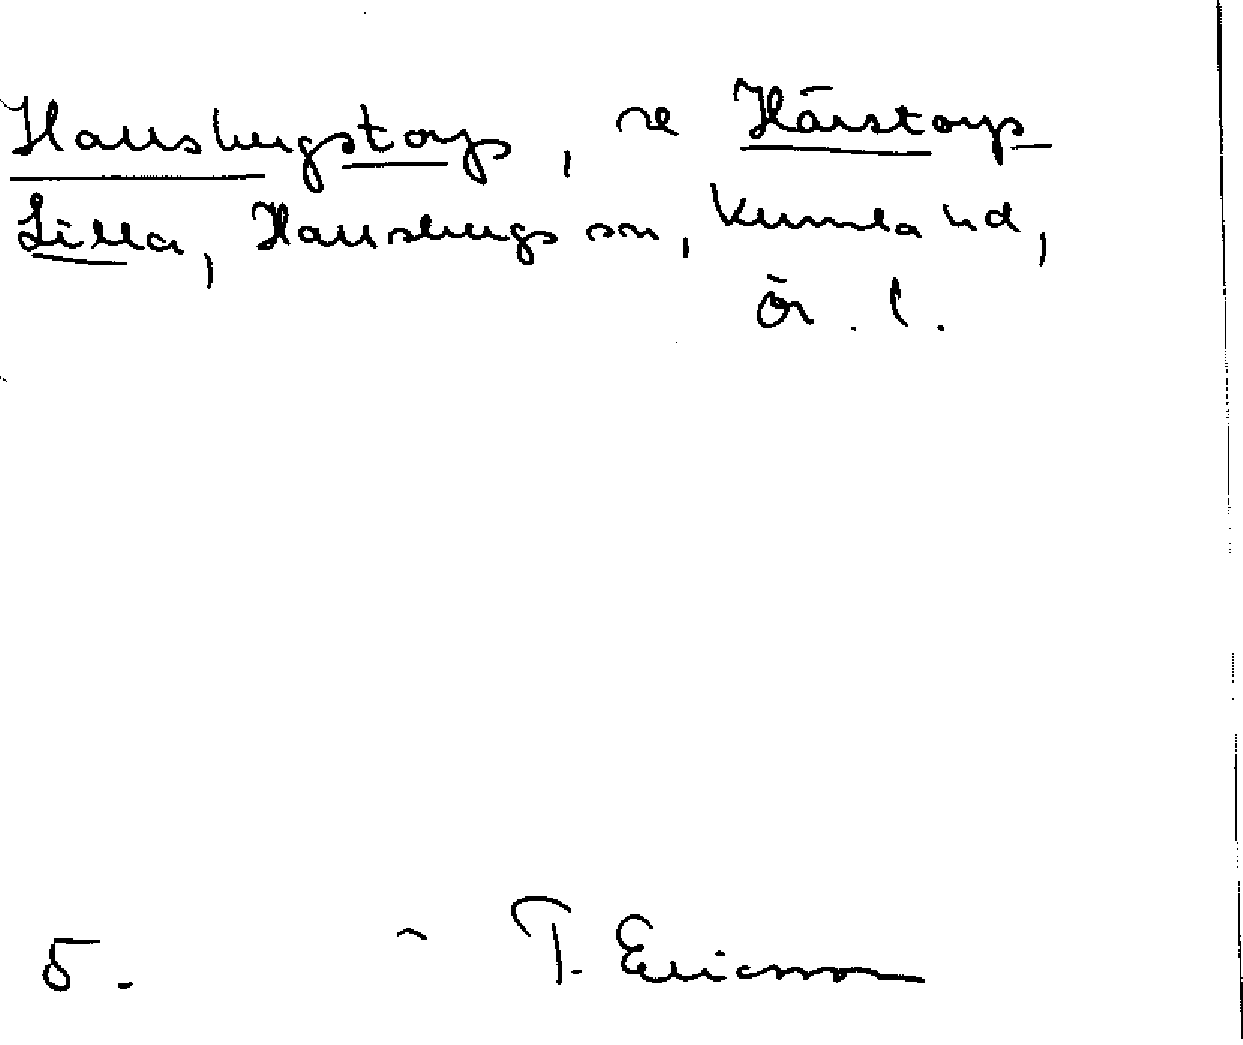 Hallsbergstorp, se Härstorp
Lilla, Hallsbergs sn, Kumla hd,
Ör. l.
5. T. Ericsson